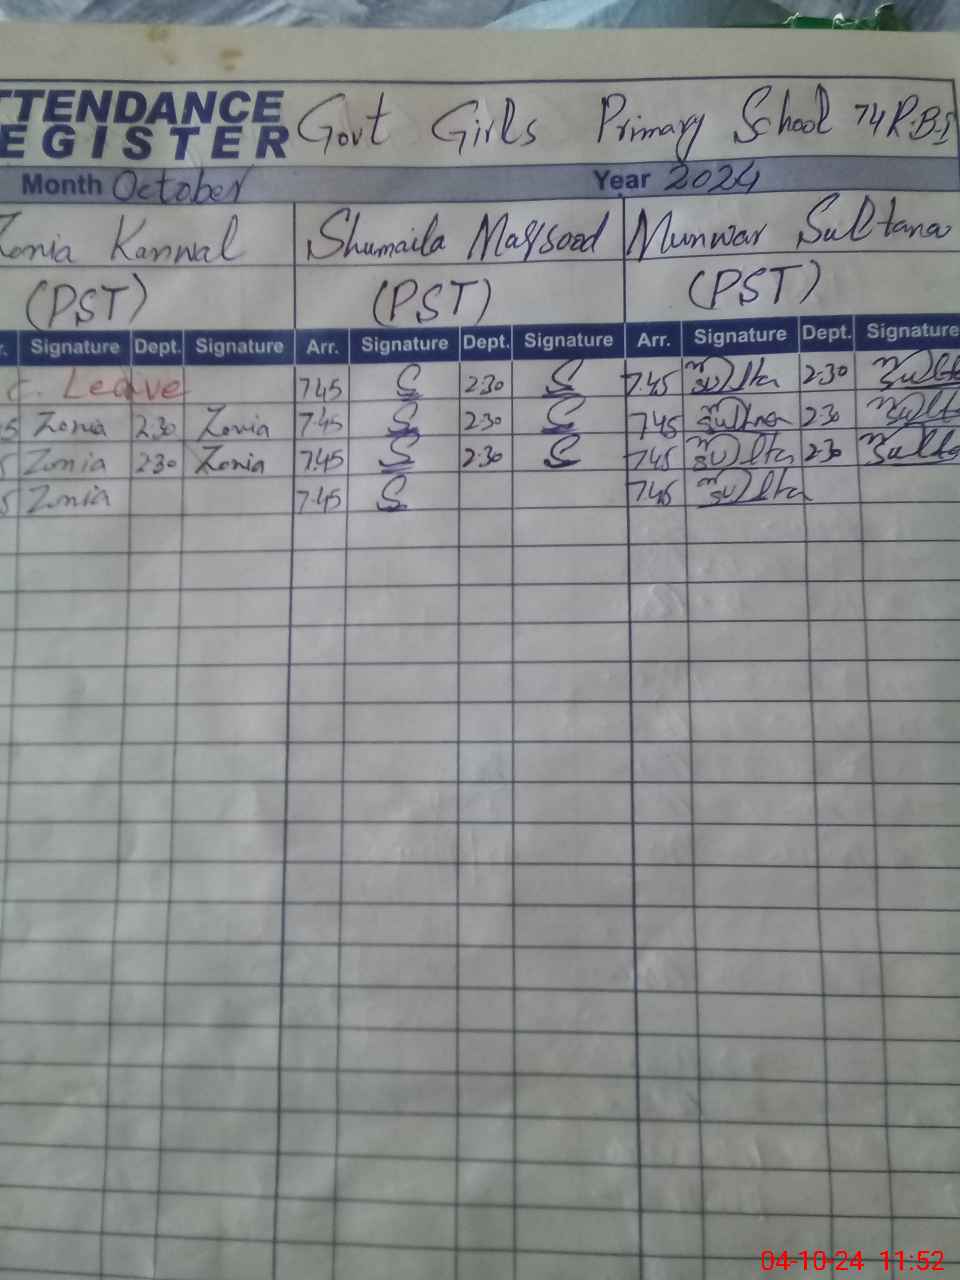 TTENDANCE
EGISTER Govt Girls Primary School 74 R.B-I
Month October Year 2024
Zonia Kanwal Shumaila Maqsood Munwar Sultana
(PST) (PST) (PST)
r. Signature Dept. Signature Arr. Signature Dept. Signature Arr. Signature Dept. Signature
c. Leave 7.45 S 2:30 S 7.45 2:30
5 Zonia 2:30 Zonia 7.45 S 2:30 S 7.45 2:30
5 Zonia 2:30 Zonia 7.45 S 2:30 S 7.45 2:30
5 Zonia 7.45 S 7.45
04-10-24 11:52